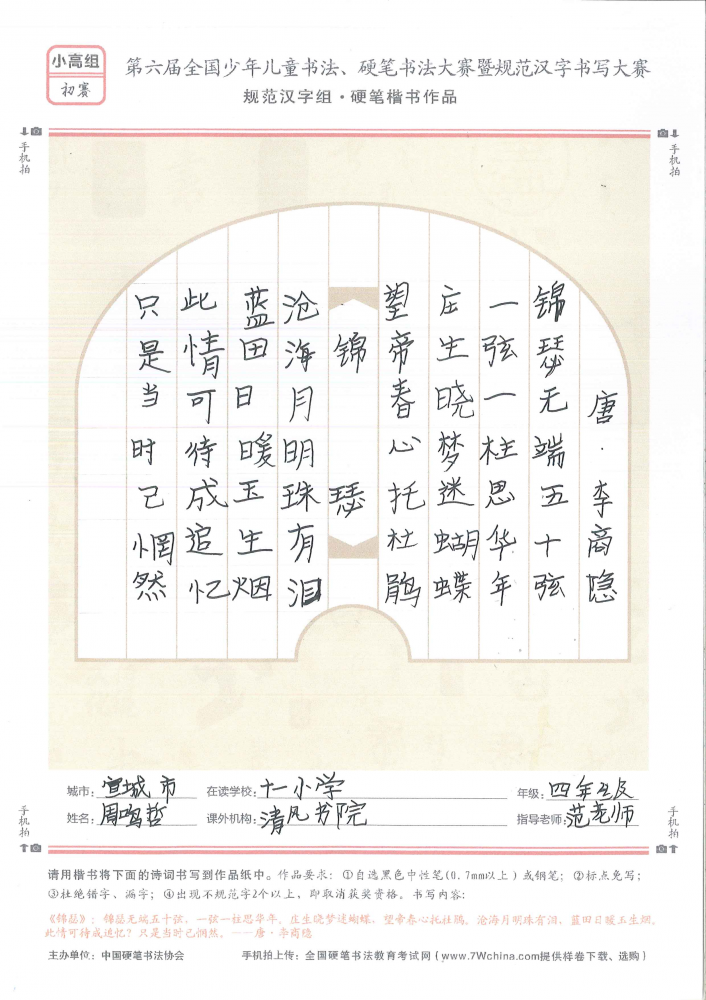 小高组
初赛
第六届全国少年儿童书法、硬笔书法大赛暨规范汉字书写大赛
规范汉字组·硬笔楷书作品
手机拍
手机拍
唐·李商隐
锦瑟无端五十弦
一弦一柱思华年
庄生晓梦迷蝴蝶
望帝春心托杜鹃
锦瑟
沧海月明珠有泪
蓝田日暖玉生烟
此情可待成追忆
只是当时已惘然
城市：宣城市
在读学校：十一小学
年级：四年级
姓名：周鸣哲
课外机构：清风书院
指导老师：范老师
手机拍
手机拍
请用楷书将下面的诗词书写到作品纸中。作品要求：①自选黑色中性笔(0.7mm以上)或钢笔；②标点免写；
③杜绝错字、漏字；④出现不规范字2个以上，即取消获奖资格。书写内容：
《锦瑟》：锦瑟无端五十弦，一弦一柱思华年。庄生晓梦迷蝴蝶，望帝春心托杜鹃。沧海月明珠有泪，蓝田日暖玉生烟。
此情可待成追忆？只是当时已惘然。——唐·李商隐
主办单位：中国硬笔书法协会
手机拍上传：全国硬笔书法教育考试网（www.7Wchina.com提供样卷下载、选购）